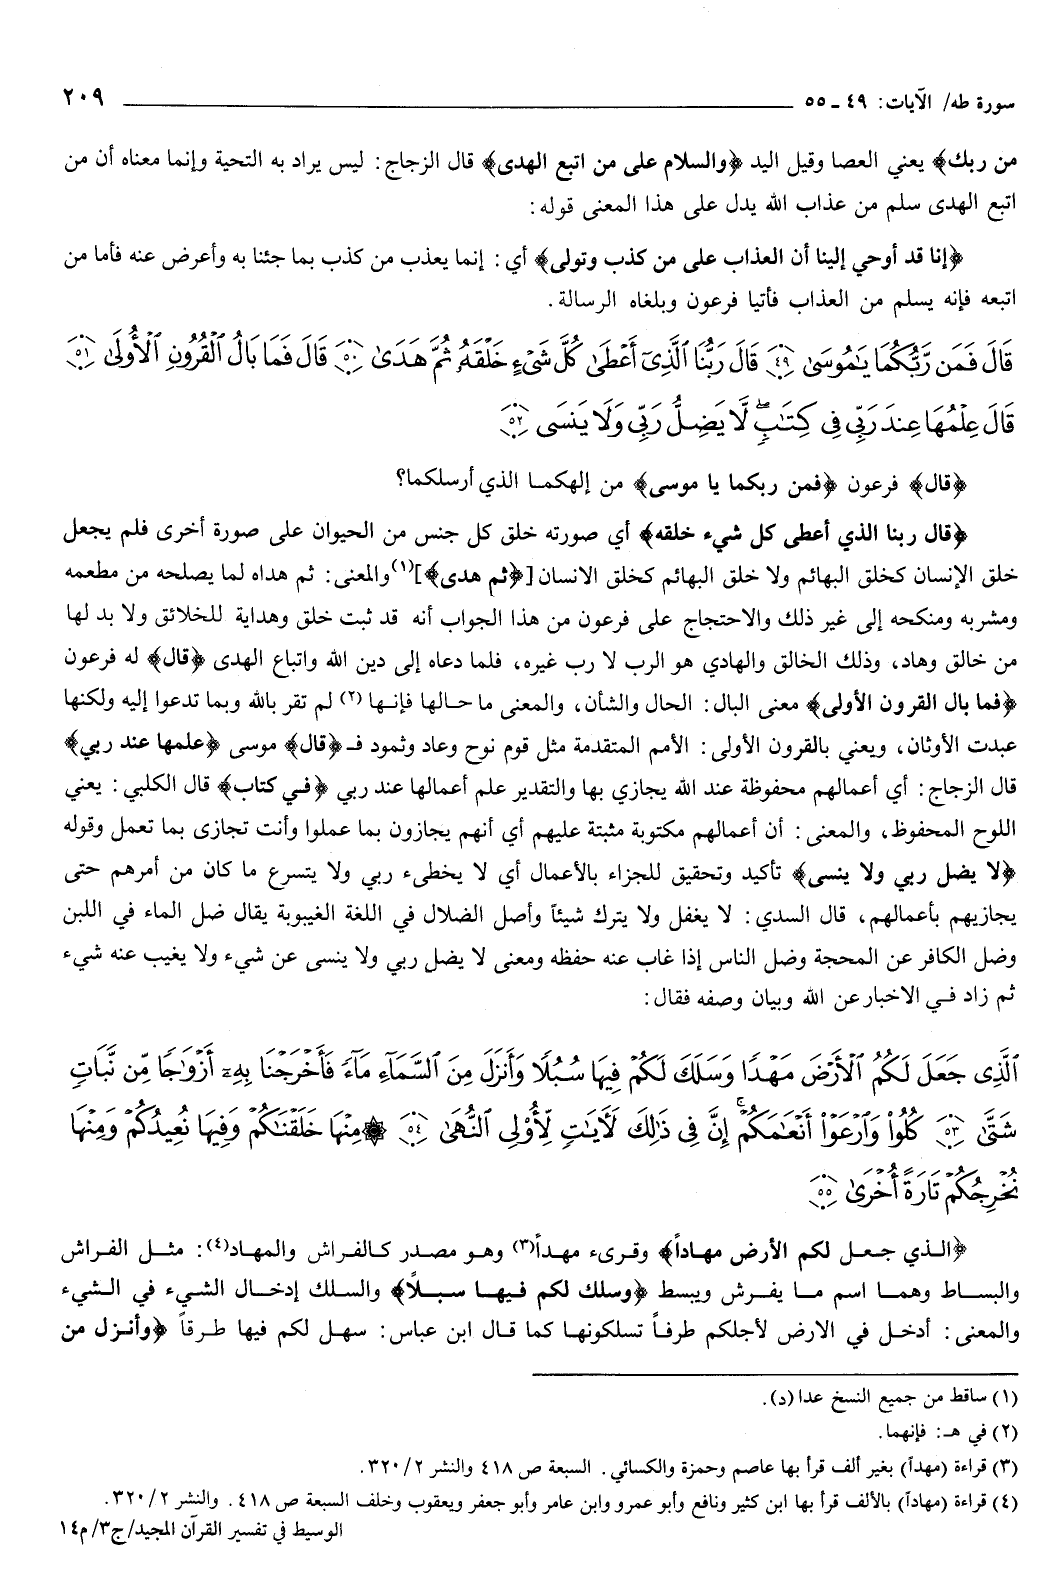 سورة طه/ الآيات: ٤٩ ـ ٥٥ ٢٠٩
من ربك﴾ يعني العصا وقيل اليد ﴿والسلام على من اتبع الهدى﴾ قال الزجاج: ليس يراد به التحية وإنما معناه أن من
اتبع الهدى سلم من عذاب الله يدل على هذا المعنى قوله:
﴿إنا قد أوحي إلينا أن العذاب على من كذب وتولى﴾ أي: إنما يعذب من كذب بما جئنا به وأعرض عنه فأما من
اتبعه فإنه يسلم من العذاب فأتيا فرعون وبلغاه الرسالة.
قَالَ فَمَن رَّبُّكُمَا يَٰمُوسَىٰ ٤٩ قَالَ رَبُّنَا ٱلَّذِىٓ أَعْطَىٰ كُلَّ شَىْءٍ خَلْقَهُۥ ثُمَّ هَدَىٰ ٥٠ قَالَ فَمَا بَالُ ٱلْقُرُونِ ٱلْأُولَىٰ ٥١
قَالَ عِلْمُهَا عِندَ رَبِّى فِى كِتَٰبٍۖ لَّا يَضِلُّ رَبِّى وَلَا يَنسَى ٥٢
﴿قال﴾ فرعون ﴿فمن ربكما يا موسى﴾ من إلهكمـا الذي أرسلكما؟
﴿قال ربنا الذي أعطى كل شيء خلقه﴾ أي صورته خلق كل جنس من الحيوان على صورة أخرى فلم يجعل
خلق الإنسان كخلق البهائم ولا خلق البهائم كخلق الانسان [﴿ثم هدى﴾](١) والمعنى: ثم هداه لما يصلحه من مطعمه
ومشربه ومنكحه إلى غير ذلك والاحتجاج على فرعون من هذا الجواب أنه قد ثبت خلق وهداية للخلائق ولا بد لها
من خالق وهاد، وذلك الخالق والهادي هو الرب لا رب غيره، فلما دعاه إلى دين الله واتباع الهدى ﴿قال﴾ له فرعون
﴿فما بال القرون الأولى﴾ معنى البال: الحال والشأن، والمعنى ما حـالها فإنـها (٢) لم تقر بالله وبما تدعوا إليه ولكنها
عبدت الأوثان، ويعني بالقرون الأولى: الأمم المتقدمة مثل قوم نوح وعاد وثمود فـ ﴿قال﴾ موسى ﴿علمها عند ربي﴾
قال الزجاج: أي أعمالهم محفوظة عند الله يجازي بها والتقدير علم أعمالها عند ربي ﴿فـي كتاب﴾ قال الكلبي: يعني
اللوح المحفوظ، والمعنى: أن أعمالهم مكتوبة مثبتة عليهم أي أنهم يجازون بما عملوا وأنت تجازى بما تعمل وقوله
﴿لا يضل ربي ولا ينسى﴾ تأكيد وتحقيق للجزاء بالأعمال أي لا يخطىء ربي ولا يتسرع ما كان من أمرهم حتى
يجازيهم بأعمالهم، قال السدي: لا يغفل ولا يترك شيئاً وأصل الضلال في اللغة الغيبوبة يقال ضل الماء في اللبن
وضل الكافر عن المحجة وضل الناس إذا غاب عنه حفظه ومعنى لا يضل ربي ولا ينسى عن شيء ولا يغيب عنه شيء
ثم زاد فـي الاخبار عن الله وبيان وصفه فقال:
ٱلَّذِى جَعَلَ لَكُمُ ٱلْأَرْضَ مَهْدًا وَسَلَكَ لَكُمْ فِيهَا سُبُلًا وَأَنزَلَ مِنَ ٱلسَّمَآءِ مَآءً فَأَخْرَجْنَا بِهِۦٓ أَزْوَٰجًا مِّن نَّبَاتٍ
شَتَّىٰ ٥٣ كُلُوا۟ وَٱرْعَوْا۟ أَنْعَٰمَكُمْۚ إِنَّ فِى ذَٰلِكَ لَءَايَٰتٍ لِّأُو۟لِى ٱلنُّهَىٰ ٥٤ ۞ مِنْهَا خَلَقْنَٰكُمْ وَفِيهَا نُعِيدُكُمْ وَمِنْهَا
نُخْرِجُكُمْ تَارَةً أُخْرَىٰ ٥٥
﴿الـذي جـعـل لكم الأرض مهـاداً﴾ وقـرىء مهـداً(٣) وهـو مصدر كـالفـراش والمهـاد(٤): مثـل الفـراش
والبسـاط وهمـا اسم مـا يفـرش ويبسط ﴿وسلك لكم فيهـا سبـلاً﴾ والسـلك إدخـال الشـيء في الـشيء
والمعنى: أدخـل في الارض لأجلكم طرفـاً تسلكونهـا كما قـال ابن عباس: سهـل لكم فيها طـرقاً ﴿وأنـزل من
(١) ساقط من جميع النسخ عدا (د).
(٢) في هـ: فإنهما.
(٣) قراءة (مهداً) بغير ألف قرأ بها عاصم وحمزة والكسائي. السبعة ص ٤١٨ والنشر ٢/ ٣٢٠.
(٤) قراءة (مهاداً) بالألف قرأ بها ابن كثير ونافع وأبو عمرو وابن عامر وأبو جعفر ويعقوب وخلف السبعة ص ٤١٨. والنشر ٢/ ٣٢٠.
الوسيط في تفسير القرآن المجيد/ ج٣/ م١٤